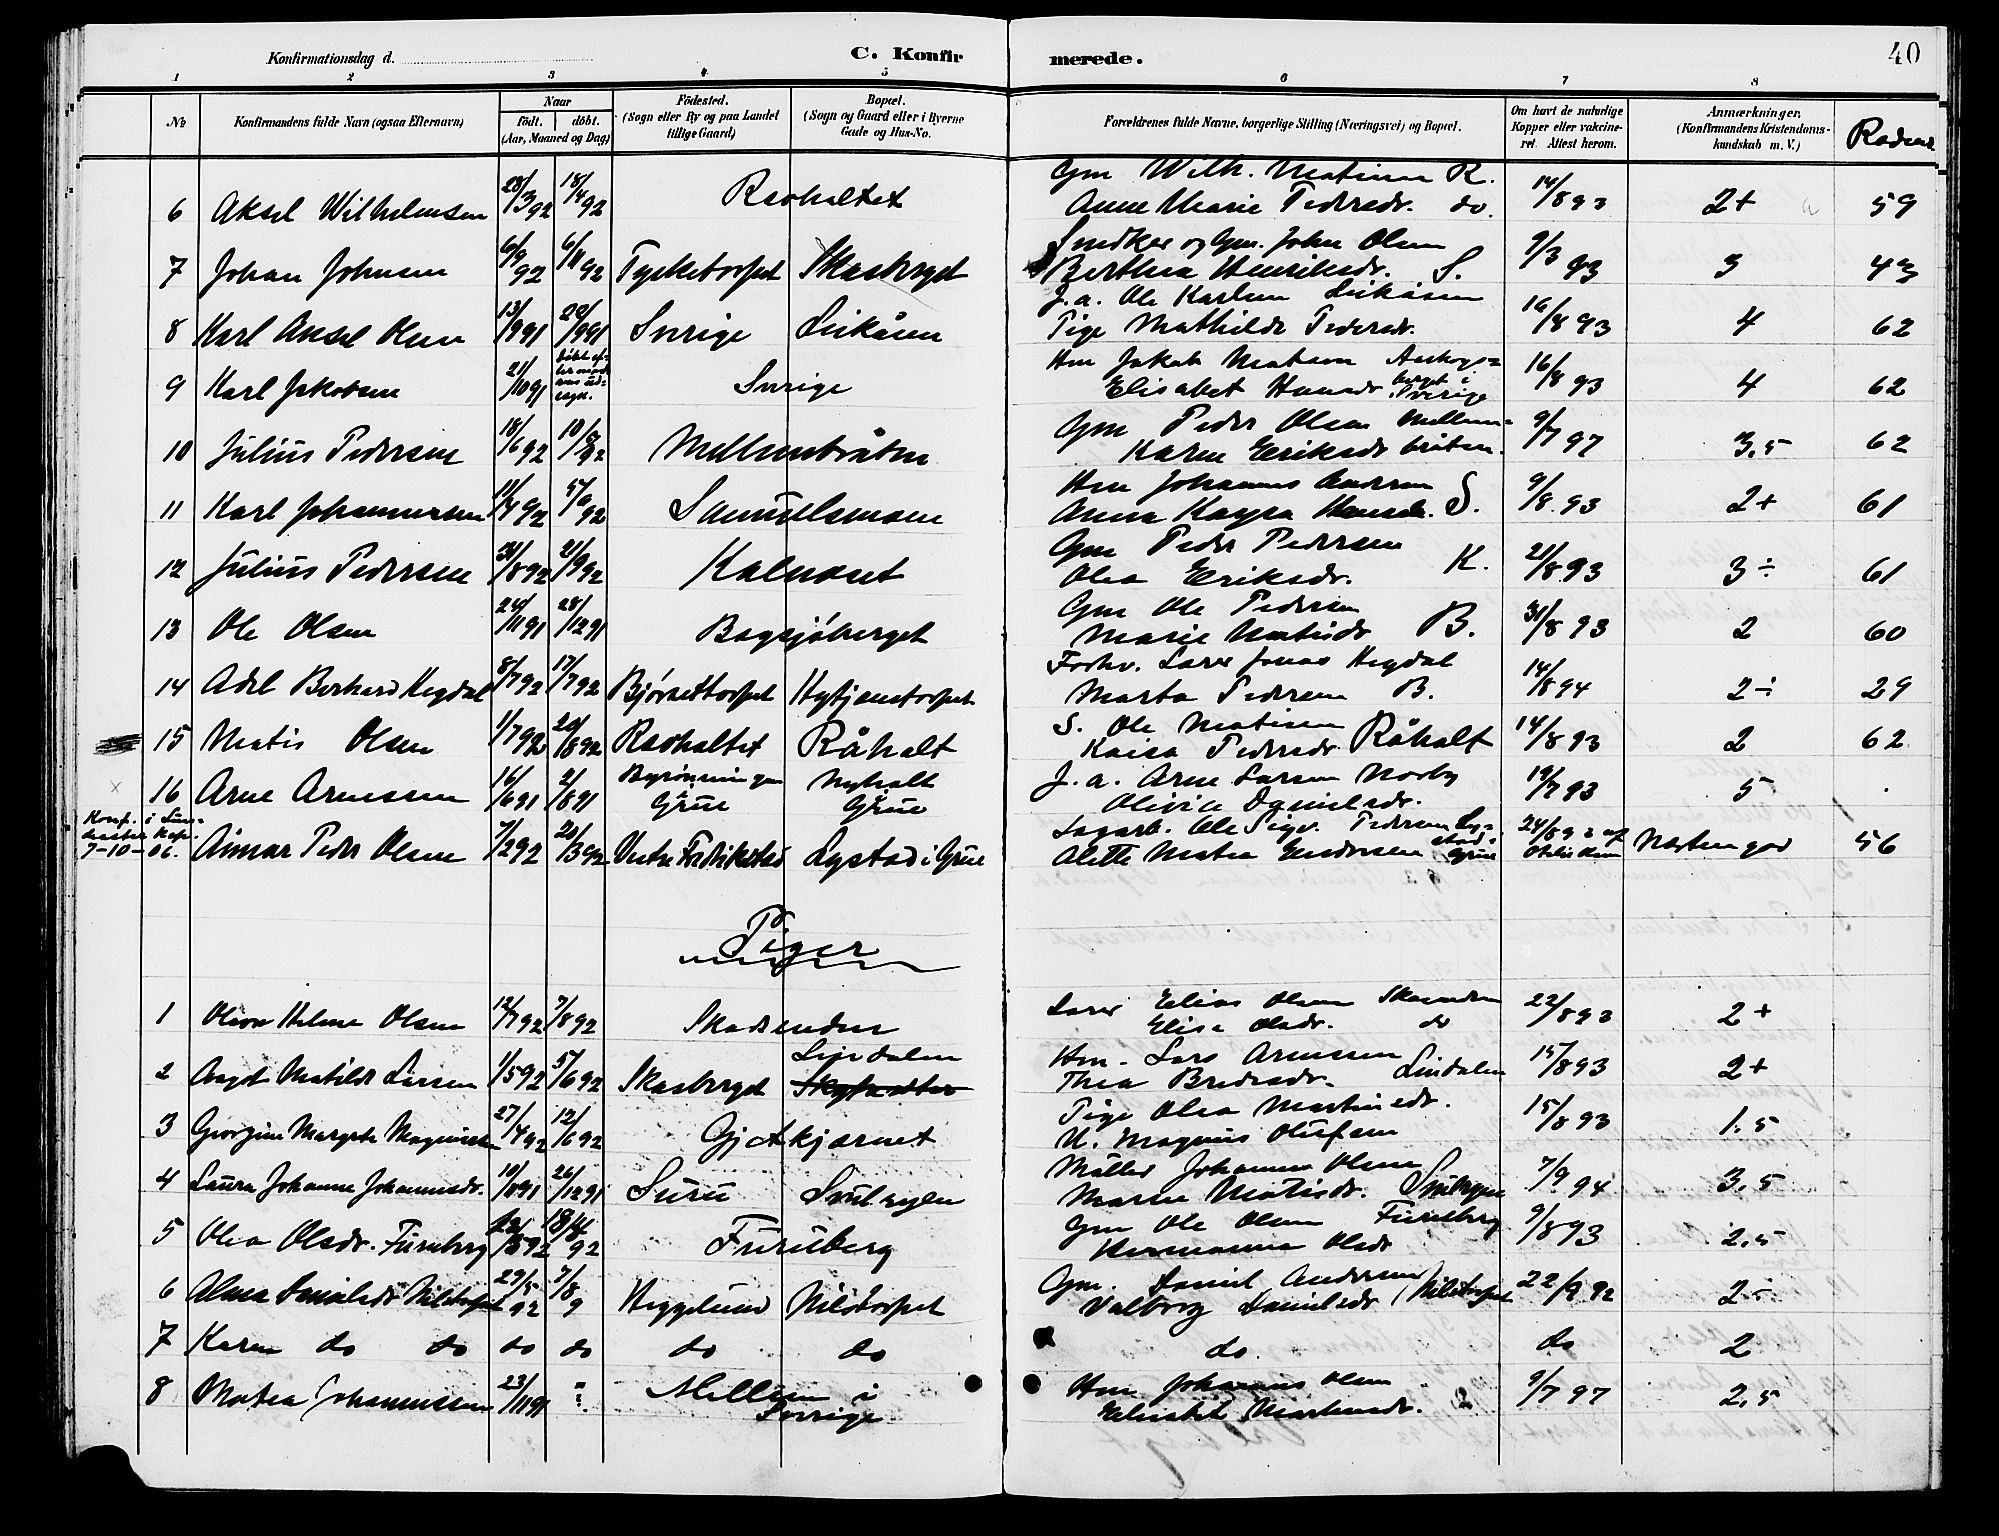 Konfirmationsdag d.
C. Konfirmerede.
40
1 2 3 4 5 6 7 8
№ Konfirmandens fulde Navn (ogsaa Efternavn) Naar født. døbt. (Aar, Maaned og Dag) Födested. (Sogn eller By og paa Landet tillige Gaard) Bopæl. (Sogn og Gaard eller i Byerne Gade og Hus-No. Forældrenes fulde Navne, borgerlige Stilling (Næringsvei) og Bopæl. Om havt de naturlige Kopper eller vakcineret. Attest herom. Anmærkninger. (Konfirmandens Kristendomskundskab m. V.)
6 Aksel Wilhelmsen 28/3 92 18/4 92 Raaholtet Gm Wilh. Matisen R. 14/8 93 2+ 59
Anne Marie Pedersdr. do.
7 Johan Johnsen 6/9 92 6/11 92 Tysketorpet Skasberget Snedker og Gm. John Olsen 9/3 93 3 43
Berthea Henriksdr. S.
8 Karl Aksel Olsen 13/9 91 20/9 91 Sverige Leikåsen J. a. Ole Karlsen Leikåsen 16/8 93 4 62
Pige Mathilde Pedersdr.
9 Karl Jakobsen 21/10 91 Sverige Hm Jakob Matsen 16/8 93 4 62
Elisabet Hansdr. berget i Sverige
10 Julius Pedersen 18/6 92 10/7 92 Mellembråten Gm Peder Olsen Mellem- 9/7 97 3,5 62
Karen Eriksdr bråten.
11 Karl Johannessen 11/4 92 5/9 92 Samuelsmoen Hm Johannes Andersen S. 9/8 93 2+ 61
Anna Kaysa Hansdr.
12 Julius Pedersen 31/8 92 21/9 92 Kalneset Gm Peder Pedersen K. 21/8 93 3÷ 61
Olea Eriksdr.
13 Ole Olsen 24/11 91 28/12 91 Bogsjøberget Gm Ole Pedersen B. 31/8 93 2 60
Marie Matisdr
14 Adel Berhard Hegdal 8/7 92 17/7 92 Bjørnetorpet Hytjenstorpet Forhv. Lærer Jonas Hegdal 14/8 94 2÷ 29
Marta Pedersen B.
15 Matis Olsen 1/7 92 20/8 92 Raaholtet Råholt S. Ole Matisen Råholt 14/8 93 2 62
Kaisa Pedersdr.
16 Arne Arnessen 16/6 91 2/8 91 Byrønningen Grue Nyholt Grue J. a. Arne Larsen Norby 19/7 93 5
Olivia Danielsdr.
Konf. i
7-10-06. Ainar Peder Olsen 7/2 92 20/3 92 Vestre Fredrikstad Lystad i Grue Ole Sigv. Pedersen Ly- 24/8 92 Næsten god 56
Alette Matea Endresen stad i Grue
Piger
1 Olava Helene Olsen 12/7 92 7/8 92 Skadsenden Lærer Elias Olsen Skasenden 22/8 93 2+
Elise Olsdr. do
2 Aagot Matilde Larsen 1/5 92 5/6 92 Skasberget Lindalen Hm. Lars Arnessen 15/8 93 2+
Thea Bredesdr. Lindalen
3 Georgine Margrete 27/4 92 12/6 92 Gjetkjærnet Pige Olea Martinsdr. 15/8 93 1.5
U. Magnus Olufsen
4 Laura Johanne Johannesdr. 10/8 91 26/12 91 Suru Møller Johannes Olsen 7/9 94 3,5
Maren Matisdr.
5 Olea Olsdr. Furuberg Furuberg Gm Ole Olsen Furuberg 9/8 93 2,5
Hermanna Olsdr
6 Alma Danielsdr Nilstorpet 29/5 92 7/8 9 Heggelund Nilstorpet Gm. Daniel Andersen 22/9 92 2÷
Valborg Danielsdr (Nilstorpet
7 Karen do do do do do do do. do 2
8 Matea Johannessen 23/11 91 Hm Johannes Olsen 9/7 97 2,5
i Sverige Elisabet Martinsdr.